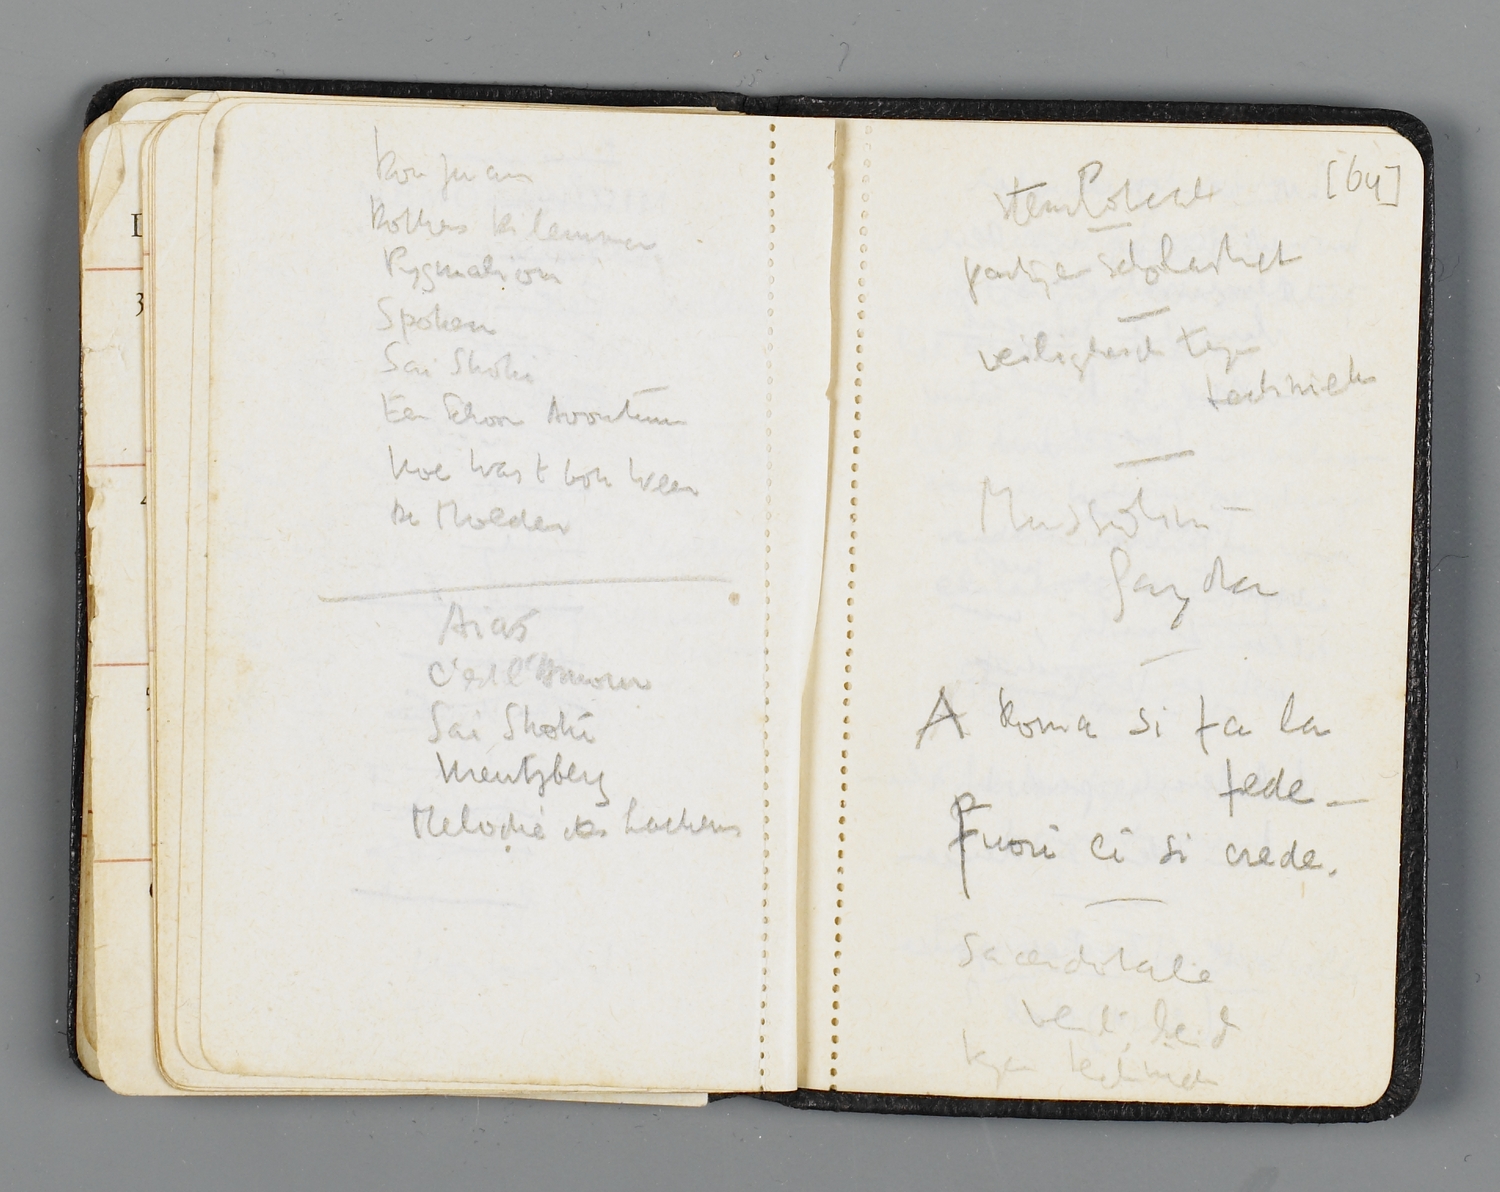 Don Juan
Dokters Dilemma
Pygmalion
Spoken
Sai Shoki
Een Schoon Avontuur
Hoe was t ook weer
De Moeder
Aias
C'est l'Amour
Sai Shoki
Kreutzberg
Melodie des
[64]
partijen scholastiek
veiligheid tegen
techniek
Mussolini –
Gayda
A Roma si fa la
fede –
Fuori ci si crede.
Sacerdotale
veiligheid
tegen techniek
L
3